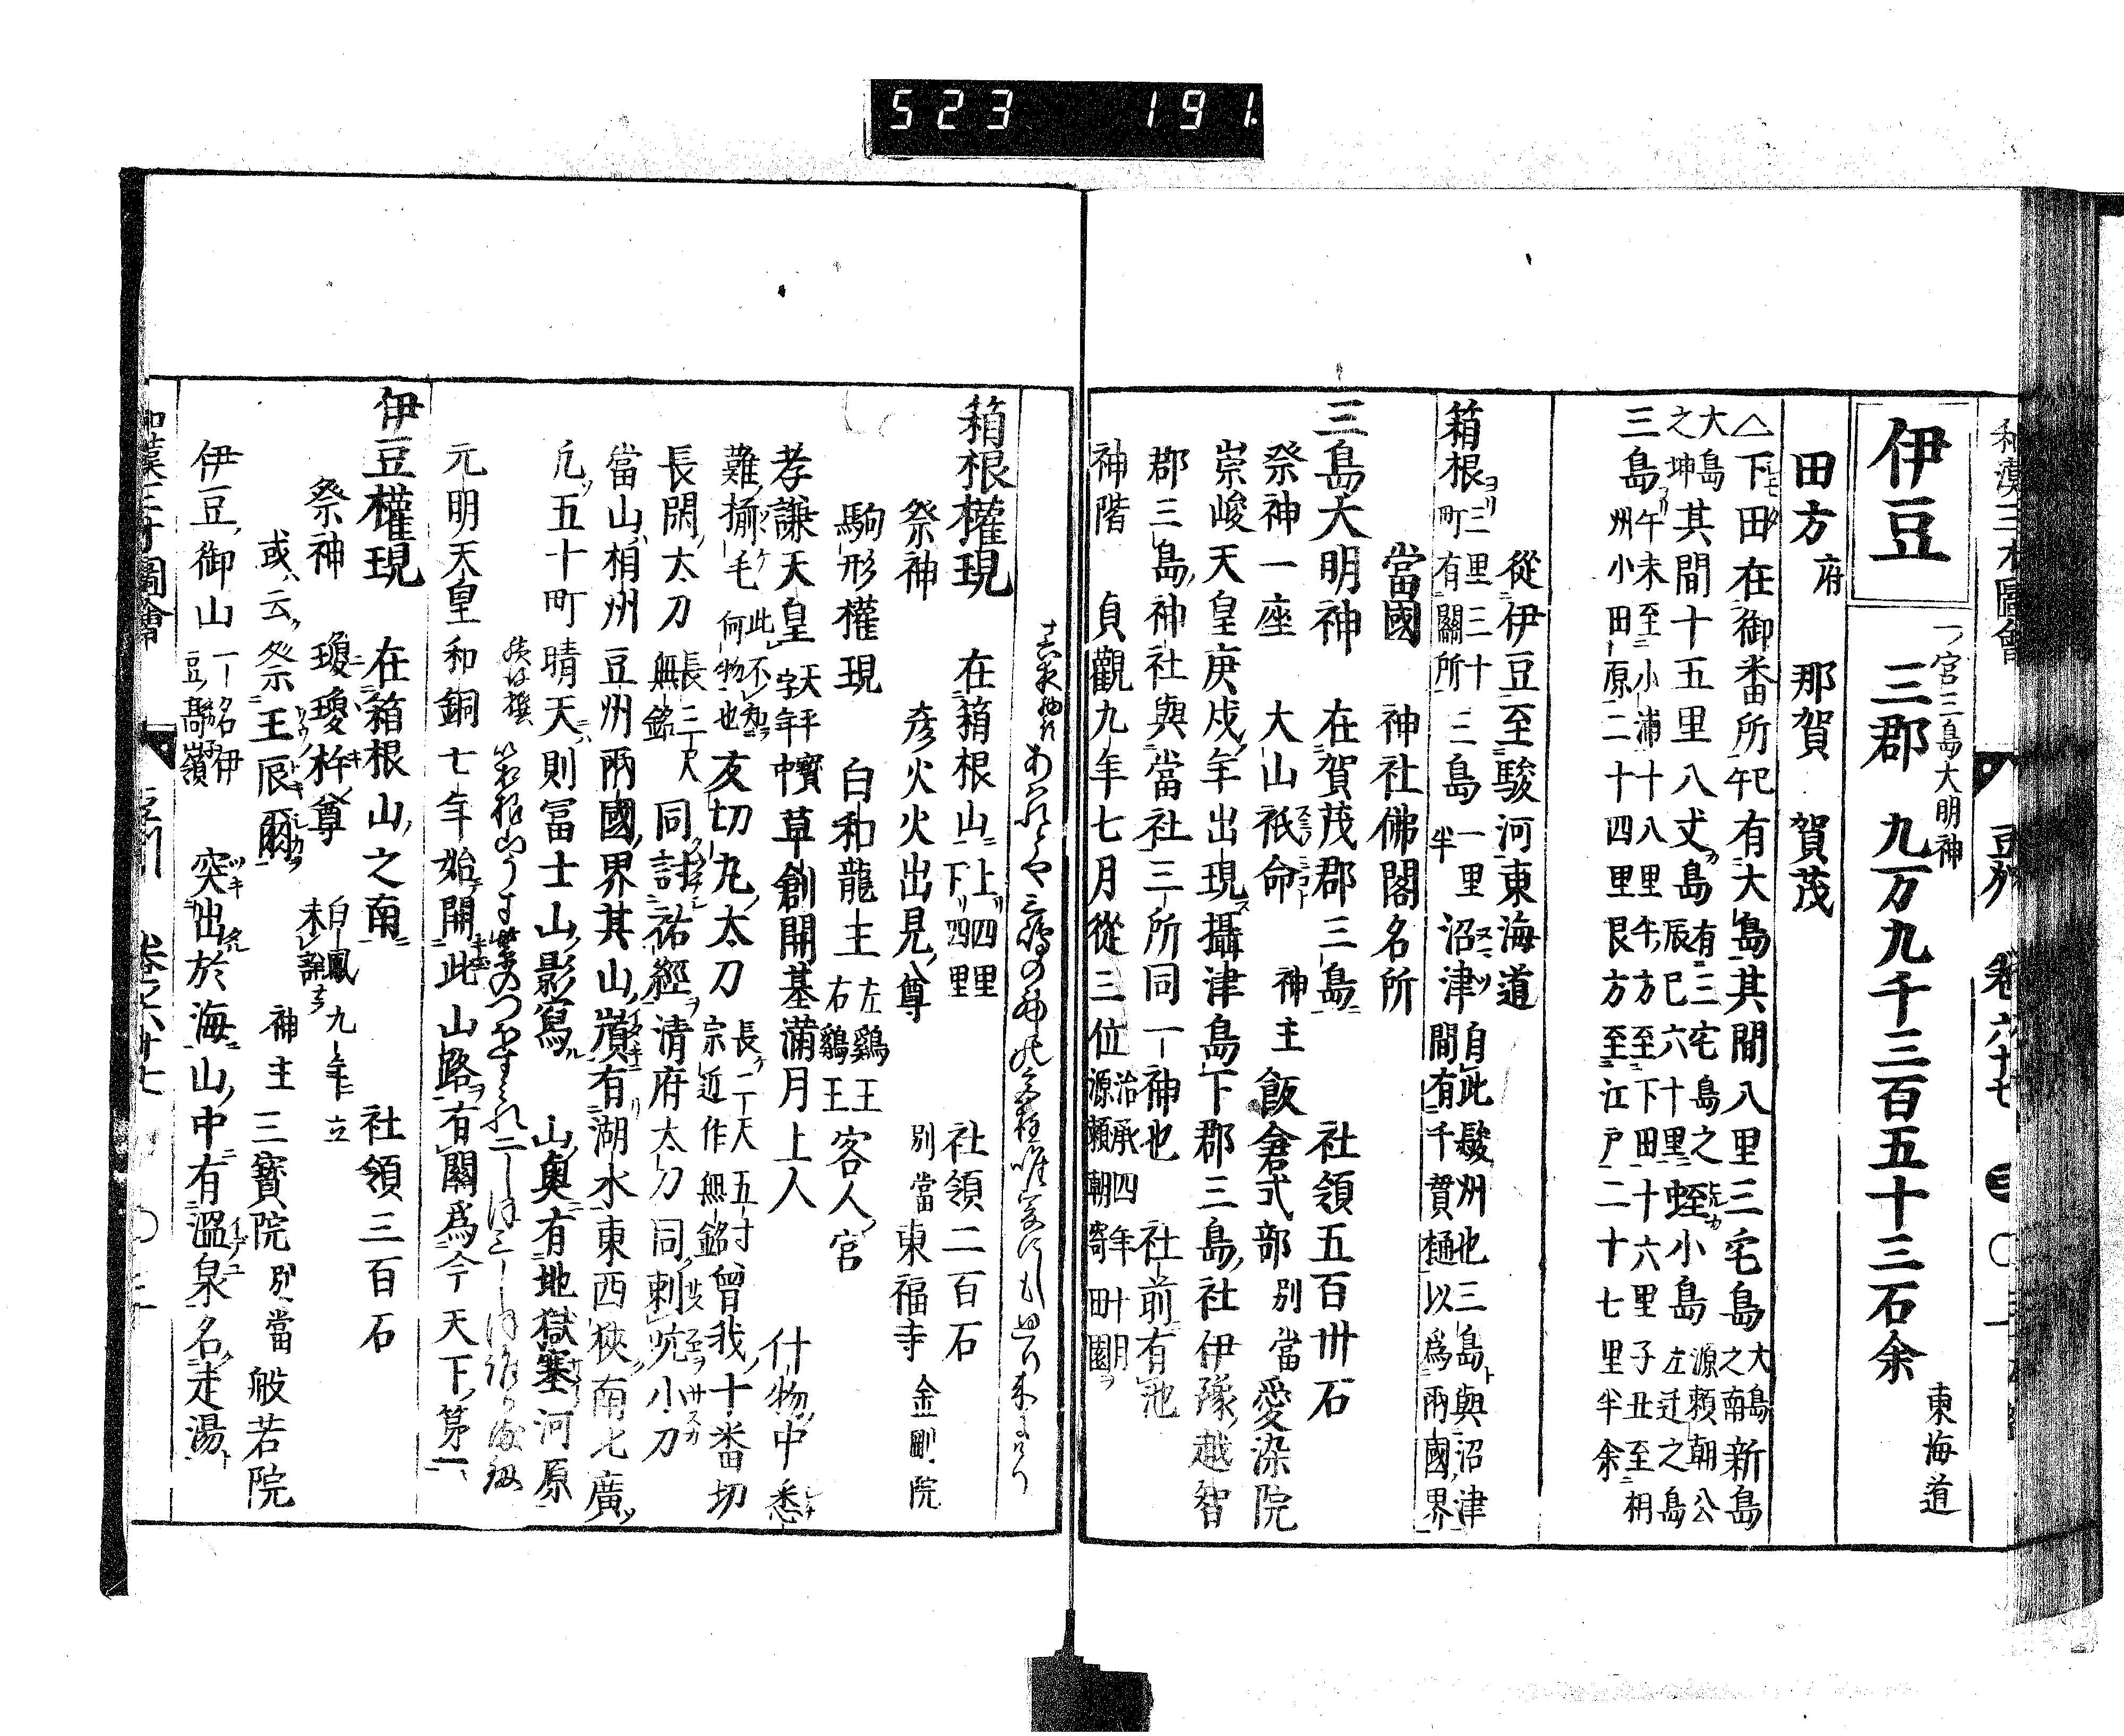 523 191.
和漢三才圖會 豆州 卷六十七
伊豆
一宮三島大明神
三郡 九万九千三百五十三石余
東海道
田方府 那賀 賀茂
△下田在御番所午巳有大島其間八里三宅島大島之南新島
大島之坤其間十五里八丈島辰巳六十里蛭小島源賴朝公左迁之島
有三宅島之
三島午未至小浦十八里午方至下田十六里子丑至相
州小田原二十四里艮方至江戸二十七里半余
從伊豆至駿河東海道
箱根ヨリ三里三十町有關所 三島一里半 沼津自此駿州也三島與沼津間有千貫樋以爲兩國界
當國 神社佛閣名所
三島大明神 在賀茂郡三島 社領五百卅石
祭神一座 大山祇命 神主 飯倉式部 別當 愛染院
崇峻天皇庚戌年出現攝津島下郡三島社伊豫越智
郡三島神社與當社三所同一神也 社前有池
神階 貞觀九年七月從三位治承四年十月源賴朝寄田園
箱根權現 在箱根山上リ四里下リ四里 社領二百石
祭神 彦火火出見尊 別當 東福寺 金剛院
駒形權現 白和龍主 左鷄王右鷄王 客人宮
孝謙天皇天平寶字年中草創開基滿月上人 什物中悉
難揄毛此不知何物也 友切丸太刀長二尺五寸宗近作無銘 曾我十番切
長閖太刀長三尺無銘 同討祐經清府太刀同刺吭小刀
當山相州豆州兩國界其山嶺有湖水東西狹南北廣
凢五十町晴天則冨士山影寫 山奥有地獄塞河原
元明天皇和銅七年始開此山路有關爲今天下第一
伊豆權現 在箱根山之南 社領三百石
祭神 瓊瓊杵尊 白鳳九年立未詳
或云祭王辰爾 神主 三寳院 別當 般若院
伊豆御山一名伊豆高嶺 突出於海山中有溫泉名走湯
和漢三才圖會 豆州 卷之六十七